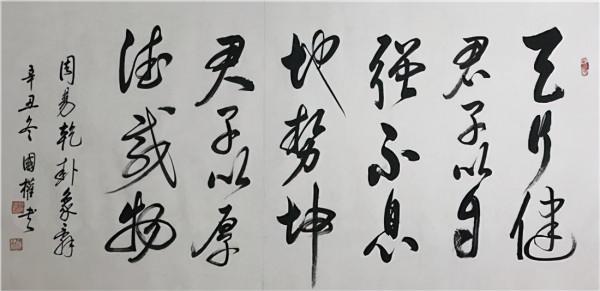 天行健
君子以自
强不息
地勢坤
君子以厚
德載物
周易乾卦象辭
辛丑冬國權书